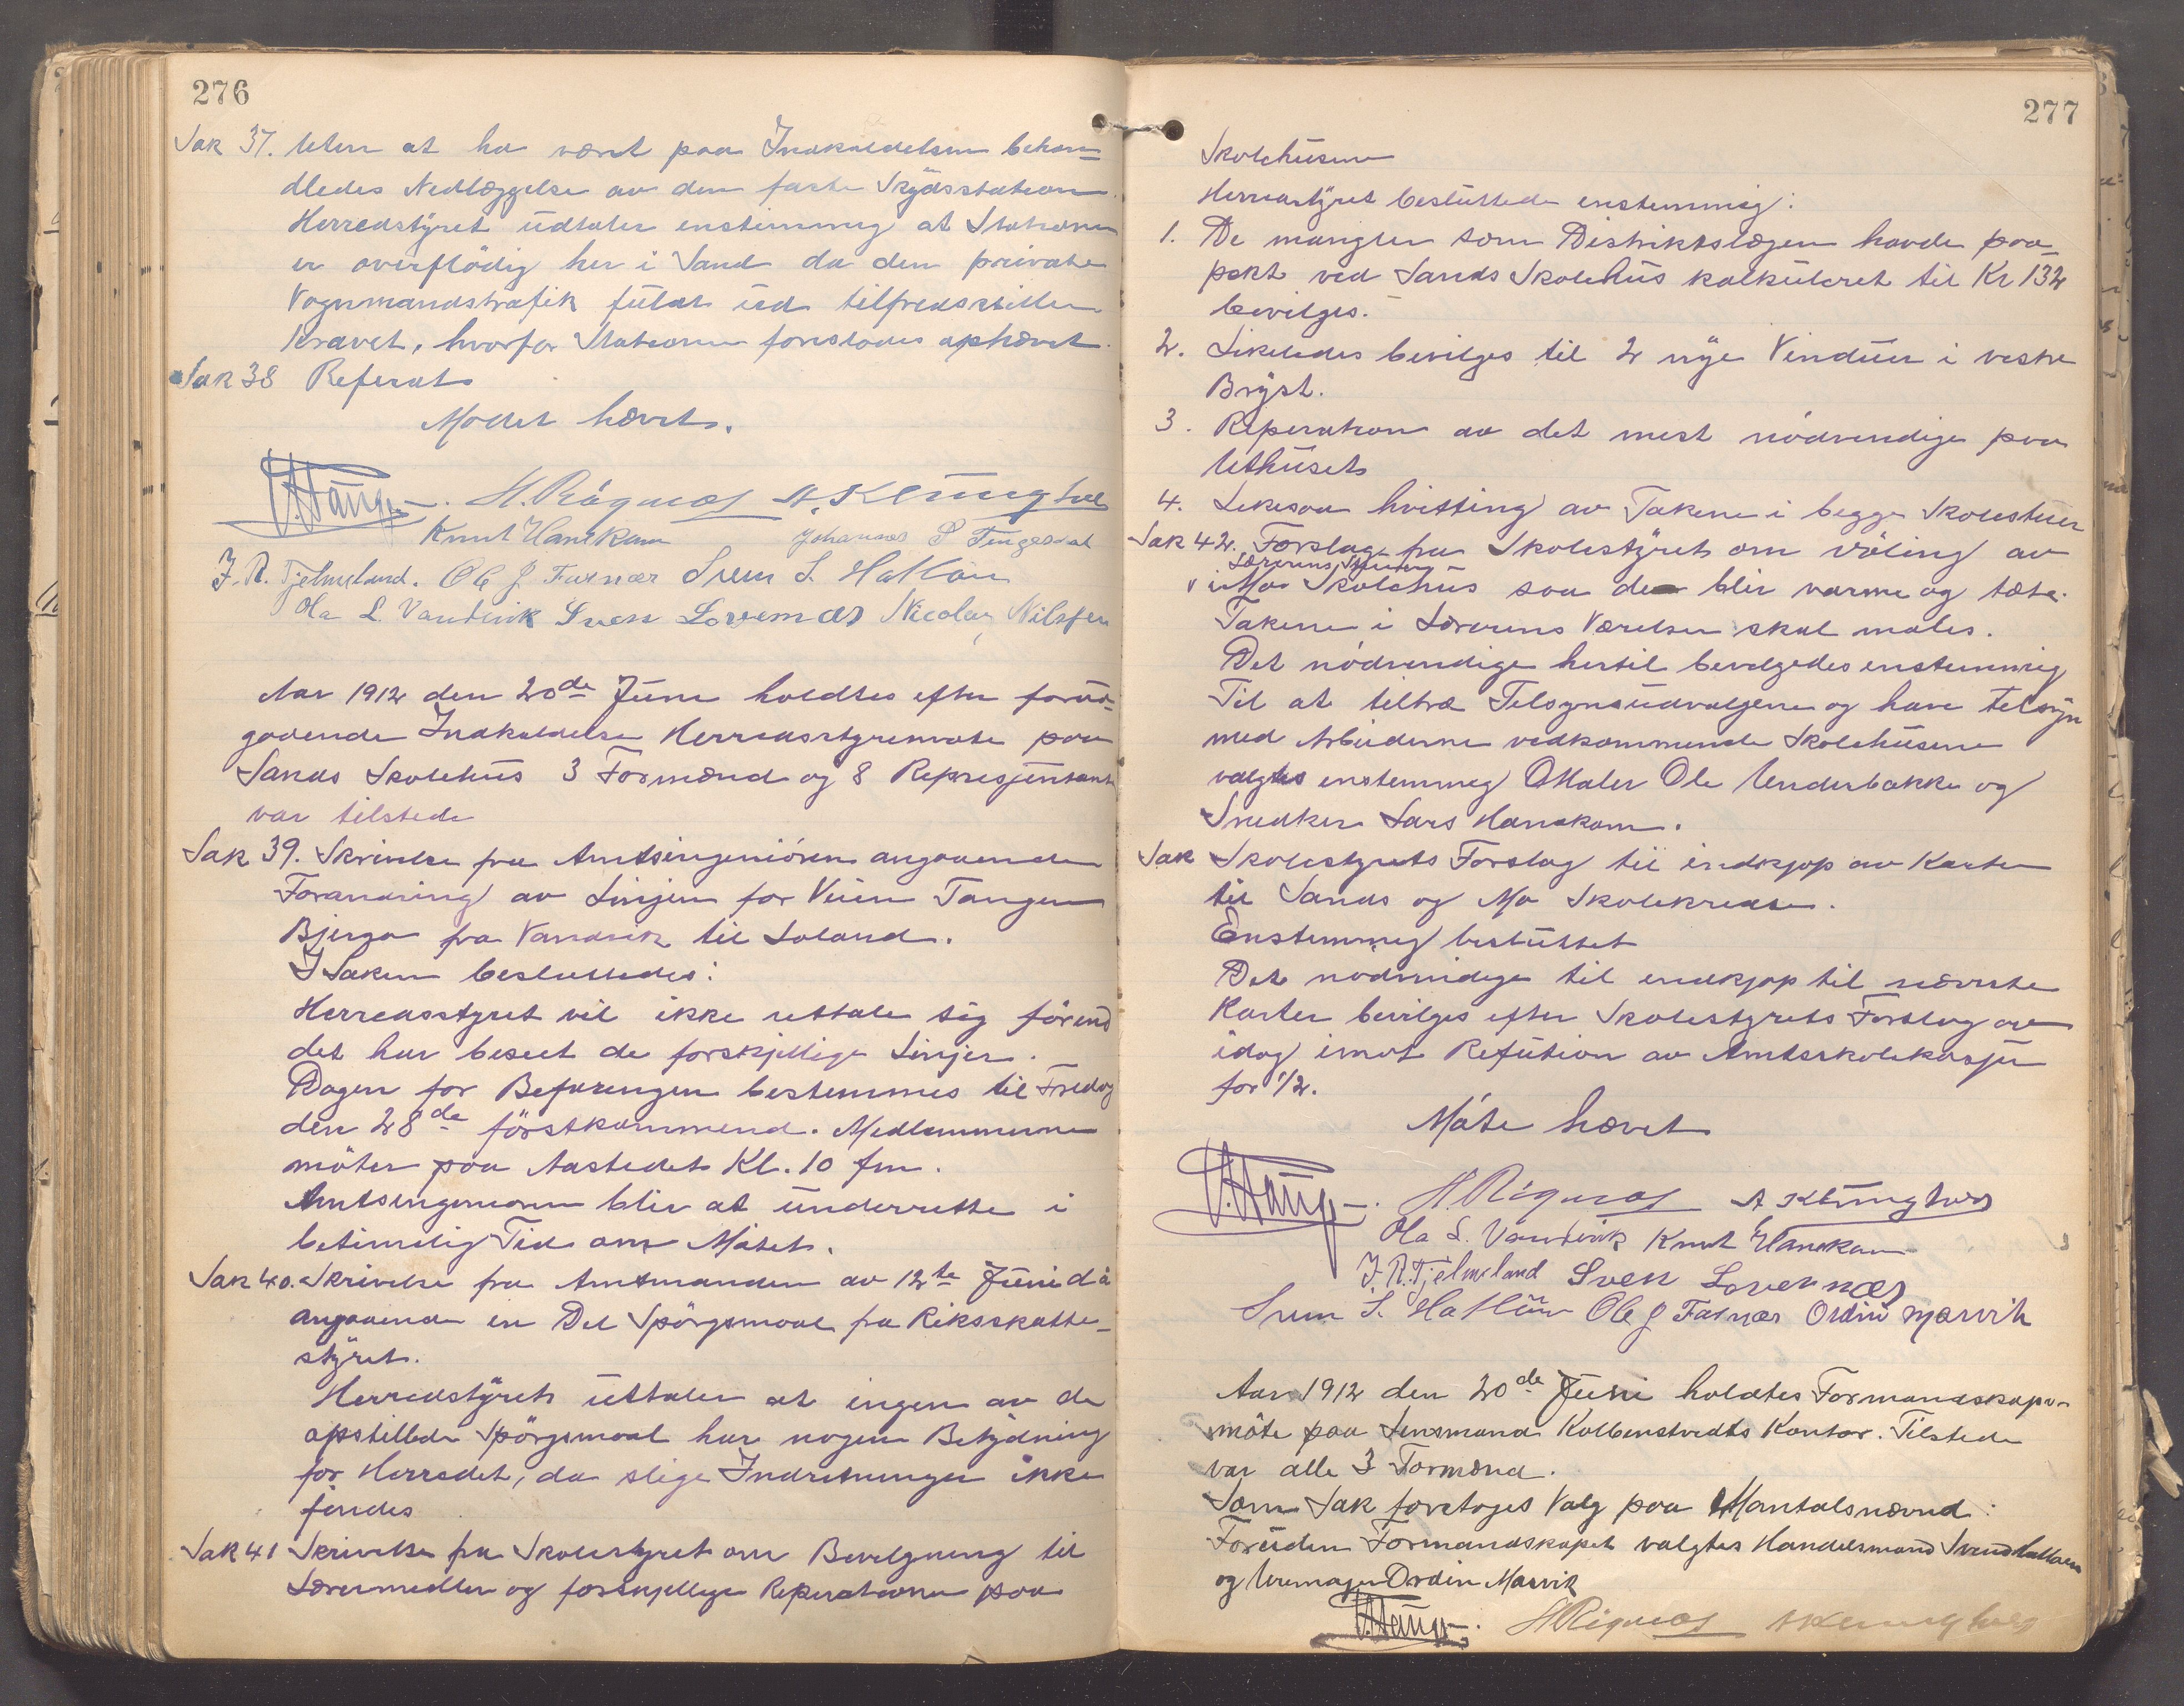 276
Sak 37. Uten at ha vært paa Indkaldelsen behan=
dledes Nedlæggelse av den faste Skydsstation.
Herredstyret udtaler enstemmig at Stationen
er overflödig her i Sand da den private
Vognmandstrafik fuldt ud tilfredsstiller
Kravet, hvorfor Stationen foreslaaes ophævet.
Sak 38 Referat
Mödet hævet.
H. Rignæs A. Klungtvedt
Knut Hanskam Johannes P Tengesdal
J. R. Tjelmeland. Ole J Fatnæs Sven S. Hatløen
Ola L. Vandvik Sven Lovernæs Nicolay Nilssen
Aar 1912 den 20de Juni holdtes efter forud-
gaaende Indkaldelse Herredsstyremøte paa
Sands Skolehus 3 Formænd og 8 Represjentanter
var tilstede
Sak 39. Skrivelse fra Amtsingeniören angaaende
Forandring av Linjen for Veien Tangen
Bjerga fra Vandvik til Loland.
I Saken besluttedes:
Herredsstyret vil ikke uttale sig förend
det har beseet de forskjellige Linjer.
Dagen for Befaringen bestemmes til Fredag
den 28de förstkommend. Medlemmerne
möter paa Aastedet Kl. 10 fm.
Amtsingeniøren blir at underrette i
betimelig Tid om Mötet.
Sak 40. Skrivelse fra Amtmanden av 12te Juni d å
angaaende en Del Spörgsmaal fra Riksskatte-
styret.
Herredstyret uttaler at ingen av de
opstillede Spörgsmaal har nogen Betydning
for Herredet, da slige Indretninger ikke
findes
Sak 41 Skrivelse fra Skolestyret om Bevilgning til
Læremidler og forskjellige Reperationer paa
277
Skolehusene
Herredstyret besluttede enstemmig:
1. De mangler som Distriktslægen havde paa-
pekt ved Sands Skolehus kalkuleret til Kr 132
bevilges.
2. Likeledes bevilges til 2 nye Vinduer i vestre
Bryst.
3. Reperation av det mest nödvendige paa
Uthuset
4. Likesaa hvitting av Takene i begge Skolestuer
Sak 42. Forslag fra Skolestyret om völing av
Lærerens
i Mo Skolehus saa de blir varme og tæte.
Takene i Lærerens Værelser skal males.
Det nödvendige hertil bevilgedes enstemmig
Til at tiltræ Tilsynsudvalgene og have tilsyn
med Arbeiderne vedkommende Skolehusene
valgtes enstemmig Maler Ole Underbakke og
Snedker Lars Hanskam.
Sak Skolestyrets Forslag til indkjøp av Karter
til Sands og Mo Skolekredse.
Enstemmig besluttet
Det nödvendige til indkjøp til nævnte
Karter bevilges efter Skolestyrets Forslag av
idag imot Refution av Amtsskolekassen
for 1/2.
Möte hævet
H. Rignæs A Klungtvedt
Ola L. Vandvik Knut Hanskam
J. R. Tjelmeland Sven Lovernæs
Sven S. Hatløen Ole J Fatnæs Ordin Marvik
Aar 1912 den 20de Juni holdtes Formandskaps-
möte paa Lensmand Kolbenstvedts Kontor. Tilstede
var alle 3 Formænd.
Som Sak foretoges Valg paa Mantalsnævnd:
Foruden Formandskapet valgtes Handelsmand Svend Hatløen
og Urmager Ordin Marvik
H Rignæs A Klungtvedt